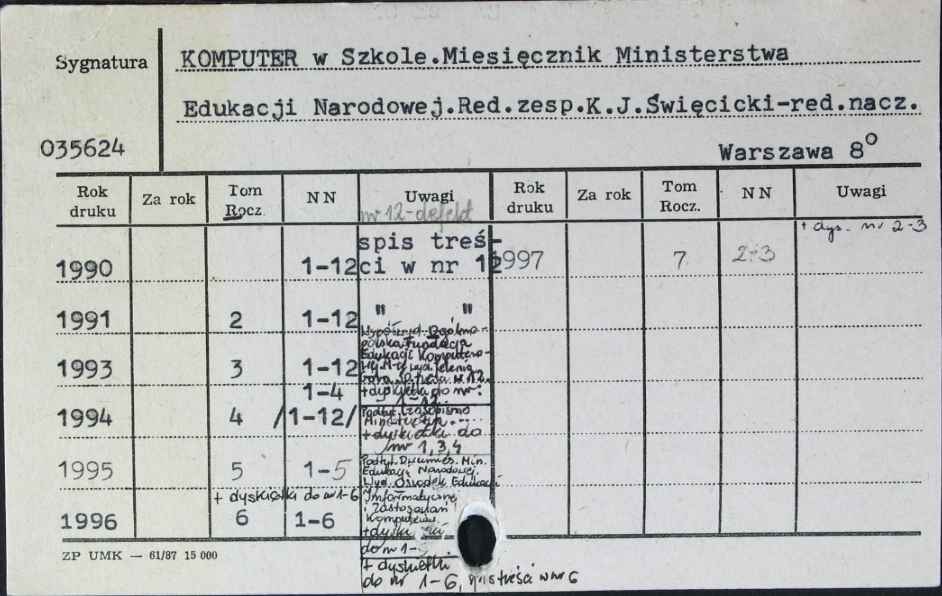 Sygnatura
KOMPUTER w Szkole.Miesięcznik Ministerstwa
Edukacji Narodowej.Red.zesp.K.J.Święcicki-red.nacz.
035624
Warszawa 8°
Rok druku Za rok Tom Rocz. NN Uwagi Rok druku Za rok Tom Rocz. NN Uwagi
nr 12-defekt
+ dys. nr 2-3
1990 1-12 spis treś-
ci w nr 12 1997 7 2-3
1991 2 1-12 " "
Współwyd. Ogólno-
polska Fundacja
Edukacji Komputero-
1993 3 1-12
+ dyskietka do nr:
1-4 1-12
1994 4 /1-12/ Podtyt. Czasopismo
+ dyskietki do
nr 1,3,4
1995 5 1-5 Podtyt. Dwumies. Min.
Edukacji Narodowej.
Wyd. Ośrodek Edukacji
+ dyskietka do nr 1-6 Informatycznej
i Zastosowań
1996 6 1-6 Komputerów
do nr 1-
+ dyskietki
do nr 1-6, spis treści w nr 6
ZP UMK — 61/87 15 000